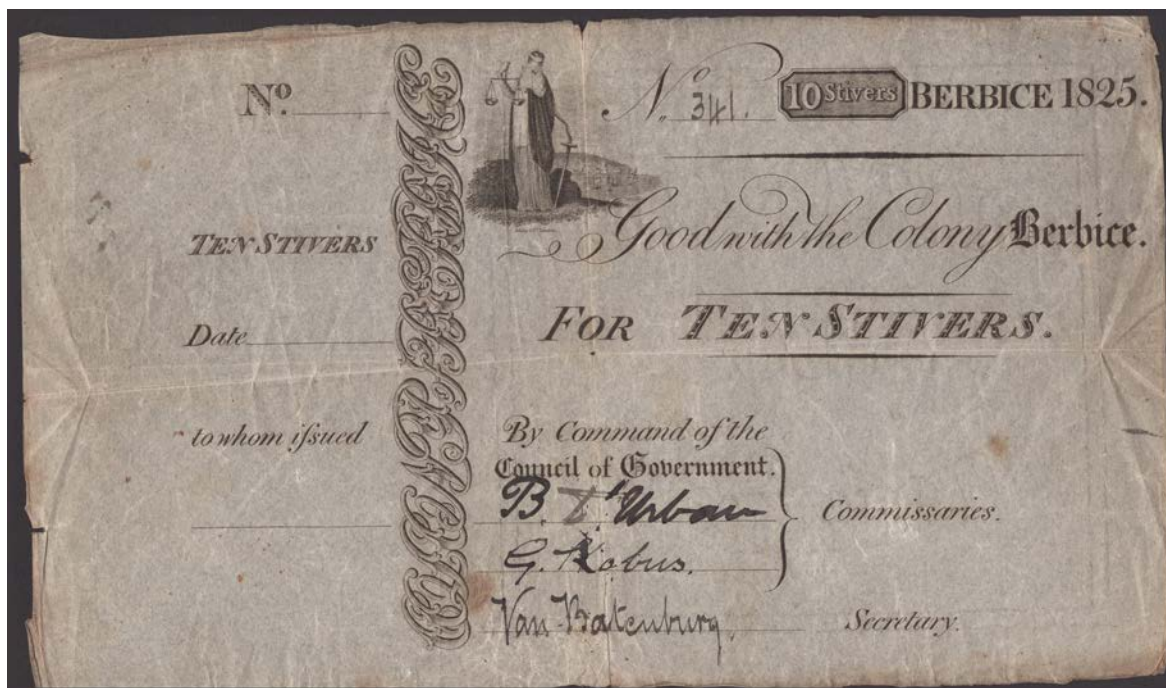 Nº
TEN STIVERS
Date
to whom ifsued
Nº 341. 10 Stivers BERBICE 1825.
Good with the Colony Berbice.
FOR TEN STIVERS.
By Command of the
Council of Government.
B. d'Urban
G. Kobus.
Commissaries.
Van Batenburg Secretary.